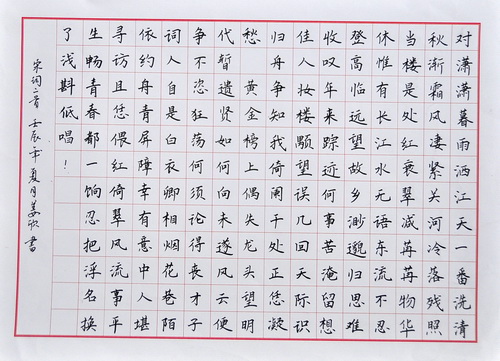 对潇潇暮雨洒江天一番洗清
秋渐霜风凄紧关河冷落残照
当楼是处红衰翠减苒苒物华
休惟有长江水无语东流不忍
登高临远望故乡渺邈归思难
收叹年来踪迹何事苦淹留想
佳人妆楼颙望误几回天际识
归舟争知我倚阑干处正恁凝
愁 黄金榜上偶失龙头望明
代暂遗贤如何向未遂风云便
争不恣狂荡何须论得丧才子
词人自是白衣卿相烟花巷陌
依约丹青屏障幸有意中人堪
寻访且恁偎红倚翠风流事平
生畅青春都一饷忍把浮名换
了浅斟低唱！
宋词二首 壬辰年夏月姜欣书